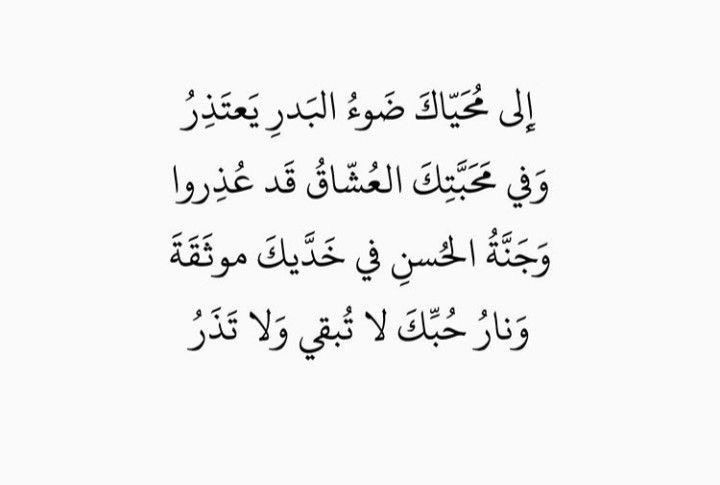 إِلى مُحَيّاكَ ضَوءُ البَدرِ يَعتَذِرُ
وَفي مَحَبَّتِكَ العُشّاقُ قَد عُذِروا
وَجَنَّةُ الحُسنِ في خَدَّيكَ موثَقَةَ
وَنارُ حُبِّكَ لا تُبقي وَلا تَذَرُ